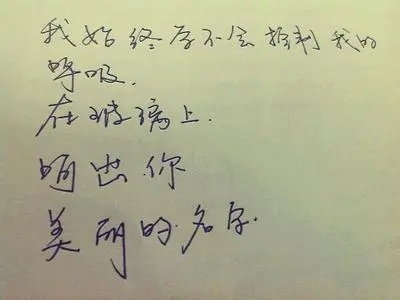 我始终学不会控制我的
呼吸.
在玻璃上.
呵出你
美丽的名字.